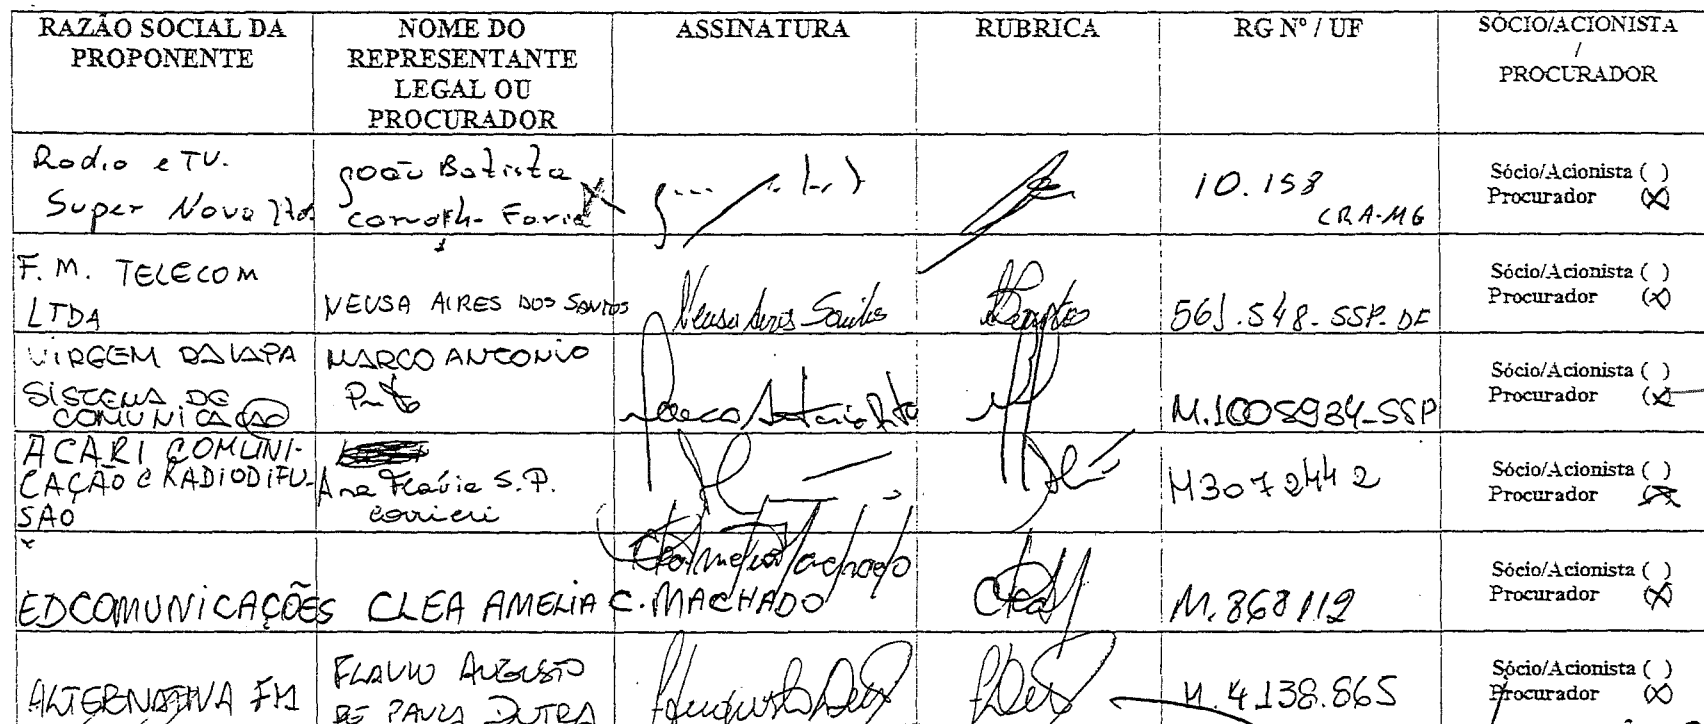 RAZÃO SOCIAL DA
PROPONENTE
NOME DO
REPRESENTANTE
LEGAL OU
PROCURADOR
ASSINATURA
RUBRICA
RG Nº / UF
SÓCIO/ACIONISTA
/
PROCURADOR
Radio e TV.
Super Nova Ltda
João Batista
Faria
10.158
CRA-MG
Sócio/Acionista ( )
Procurador (X)
F. M. TELECOM
LTDA
NEUSA AIRES DOS SANTOS
Neusa Aires Santos
561.548-SSP-DF
Sócio/Acionista ( )
Procurador (X)
VIRGEM DA LAPA
SISTEMA DE
COMUNICAÇÃO
MARCO ANTONIO
Pinto
Marco Antonio Pinto
M.1005934-SSP
Sócio/Acionista ( )
Procurador (X)
ACARI COMUNI-
CAÇÃO E RADIODIFU-
SAO
Ana Flávia S.P.
M3072442
Sócio/Acionista ( )
Procurador (X)
EDCOMUNICAÇÕES
CLEA AMELIA C. MACHADO
Clea Amelia Machado
Clea
M.868112
Sócio/Acionista ( )
Procurador (X)
ALTERNATIVA FM
FLAVIO AUGUSTO
DE PAULA DUTRA
M.4.138.865
Sócio/Acionista ( )
Procurador (X)